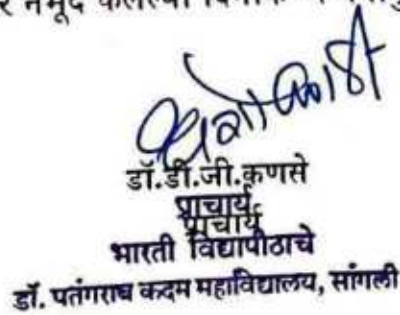 नमूद केलेल्या
डॉ.डी.जी.कणसे
प्राचार्य
प्राचार्य
भारती विद्यापीठाचे
डॉ. पतंगराव कदम महाविद्यालय, सांगली